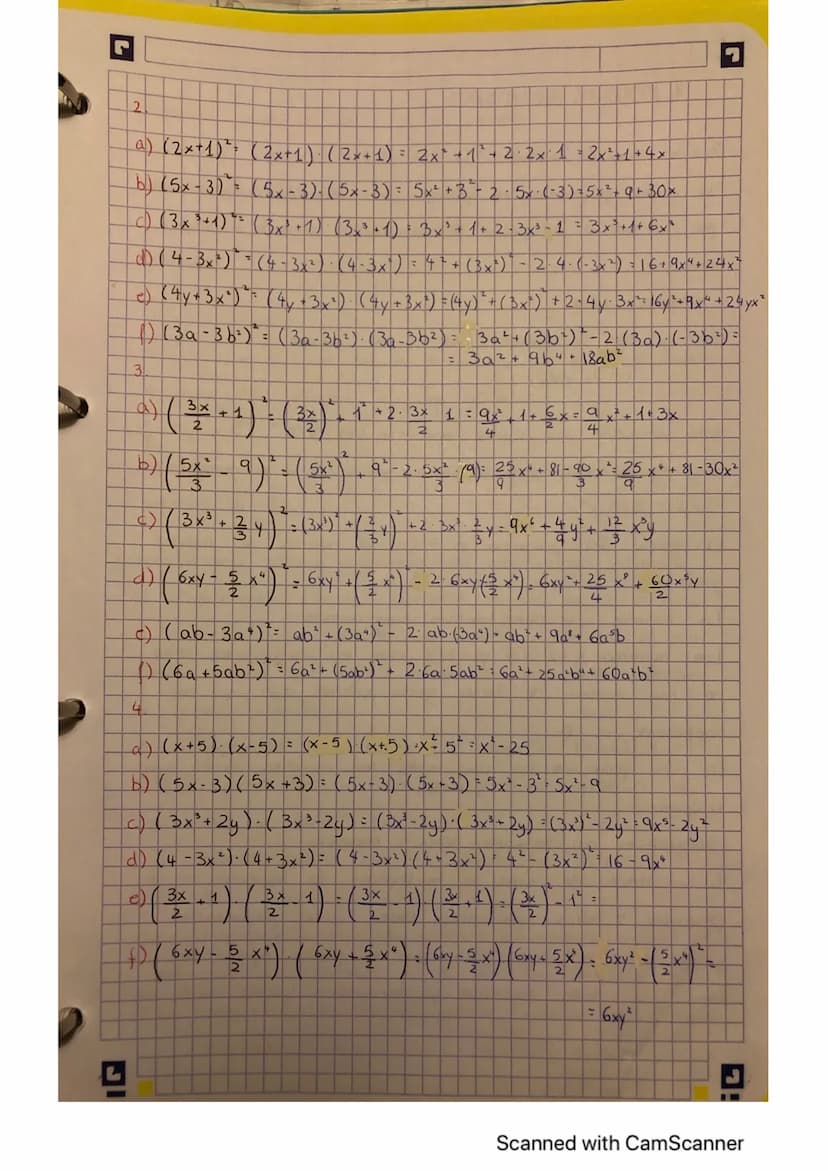 2.
a) (2x+1)² = (2x+1)·(2x+1) = 2x² + 1² + 2·2x·1 = 2x²+1+4x
b) (5x-3)² = (5x-3)·(5x-3) = 5x² + 3² - 2·5x·(-3) = 5x²+9+30x
c) (3x³+1)² = (3x³+1)·(3x³+1) = 3x³ + 1 + 2·3x³·1 = 3x³+1+6x³
d) (4-3x²)² = (4-3x²)·(4-3x²) = 4² + (3x²)² - 2·4·(-3x²) = 16+9x⁴+24x²
e) (4y+3x²)² = (4y+3x²)·(4y+3x²) = (4y)²+(3x²)²+2·4y·3x² = 16y²+9x⁴+24yx²
f) (3a-3b²)² = (3a-3b²)·(3a-3b²) = 3a²+(3b²)²-2(3a)·(-3b²) =
= 3a² + 9b⁴ + 18ab²
3.
a) (3x/2 + 1)² = (3x/2)² + 1² + 2·3x/2 · 1 = 9x²/4 + 1 + 6/2 x = 9/4 x² + 1 + 3x
b) (5x²/3 - 9)² = (5x²/3)² + 9² - 2·5x²/3·(9) = 25/9 x⁴ + 81 - 90/3 x² = 25/9 x⁴ + 81 - 30x²
c) (3x³ + 2/3 y)² = (3x³)² + (2/3 y)² + 2·3x³·2/3 y = 9x⁶ + 4/9 y² + 12/3 x³y
d) (6xy - 5/2 x⁴)² = 6xy² + (5/2 x⁴)² - 2·6xy(-5/2 x⁴) = 6xy² + 25/4 x⁸ + 60x⁵y/2
e) (ab-3a⁴)² = ab² + (3a⁴)² - 2·ab·(-3a⁴) = ab² + 9a⁸ + 6a⁵b
f) (6a+5ab²)² = 6a² + (5ab²)² + 2·6a·5ab² = 6a² + 25a²b⁴ + 60a²b²
4.
a) (x+5)·(x-5) = (x-5)(x+5) = x² - 5² = x² - 25
b) (5x-3)(5x+3) = (5x-3)·(5x+3) = 5x² - 3² = 5x² - 9
c) (3x³+2y)·(3x³-2y) = (3x³-2y)·(3x³+2y) = (3x³)² - 2y² = 9x⁵ - 2y²
d) (4-3x²)·(4+3x²) = (4-3x²)(4+3x²) = 4² - (3x²)² = 16 - 9x⁴
e) (3x/2 + 1)·(3x/2 - 1) = (3x/2 - 1)(3x/2 + 1) = (3x/2)² - 1² =
f) (6xy - 5/2 x⁴)·(6xy + 5/2 x⁴) = (6xy - 5/2 x⁴)(6xy + 5/2 x⁴) = 6xy² - (5/2 x⁴)² =
= 6xy²
Scanned with CamScanner